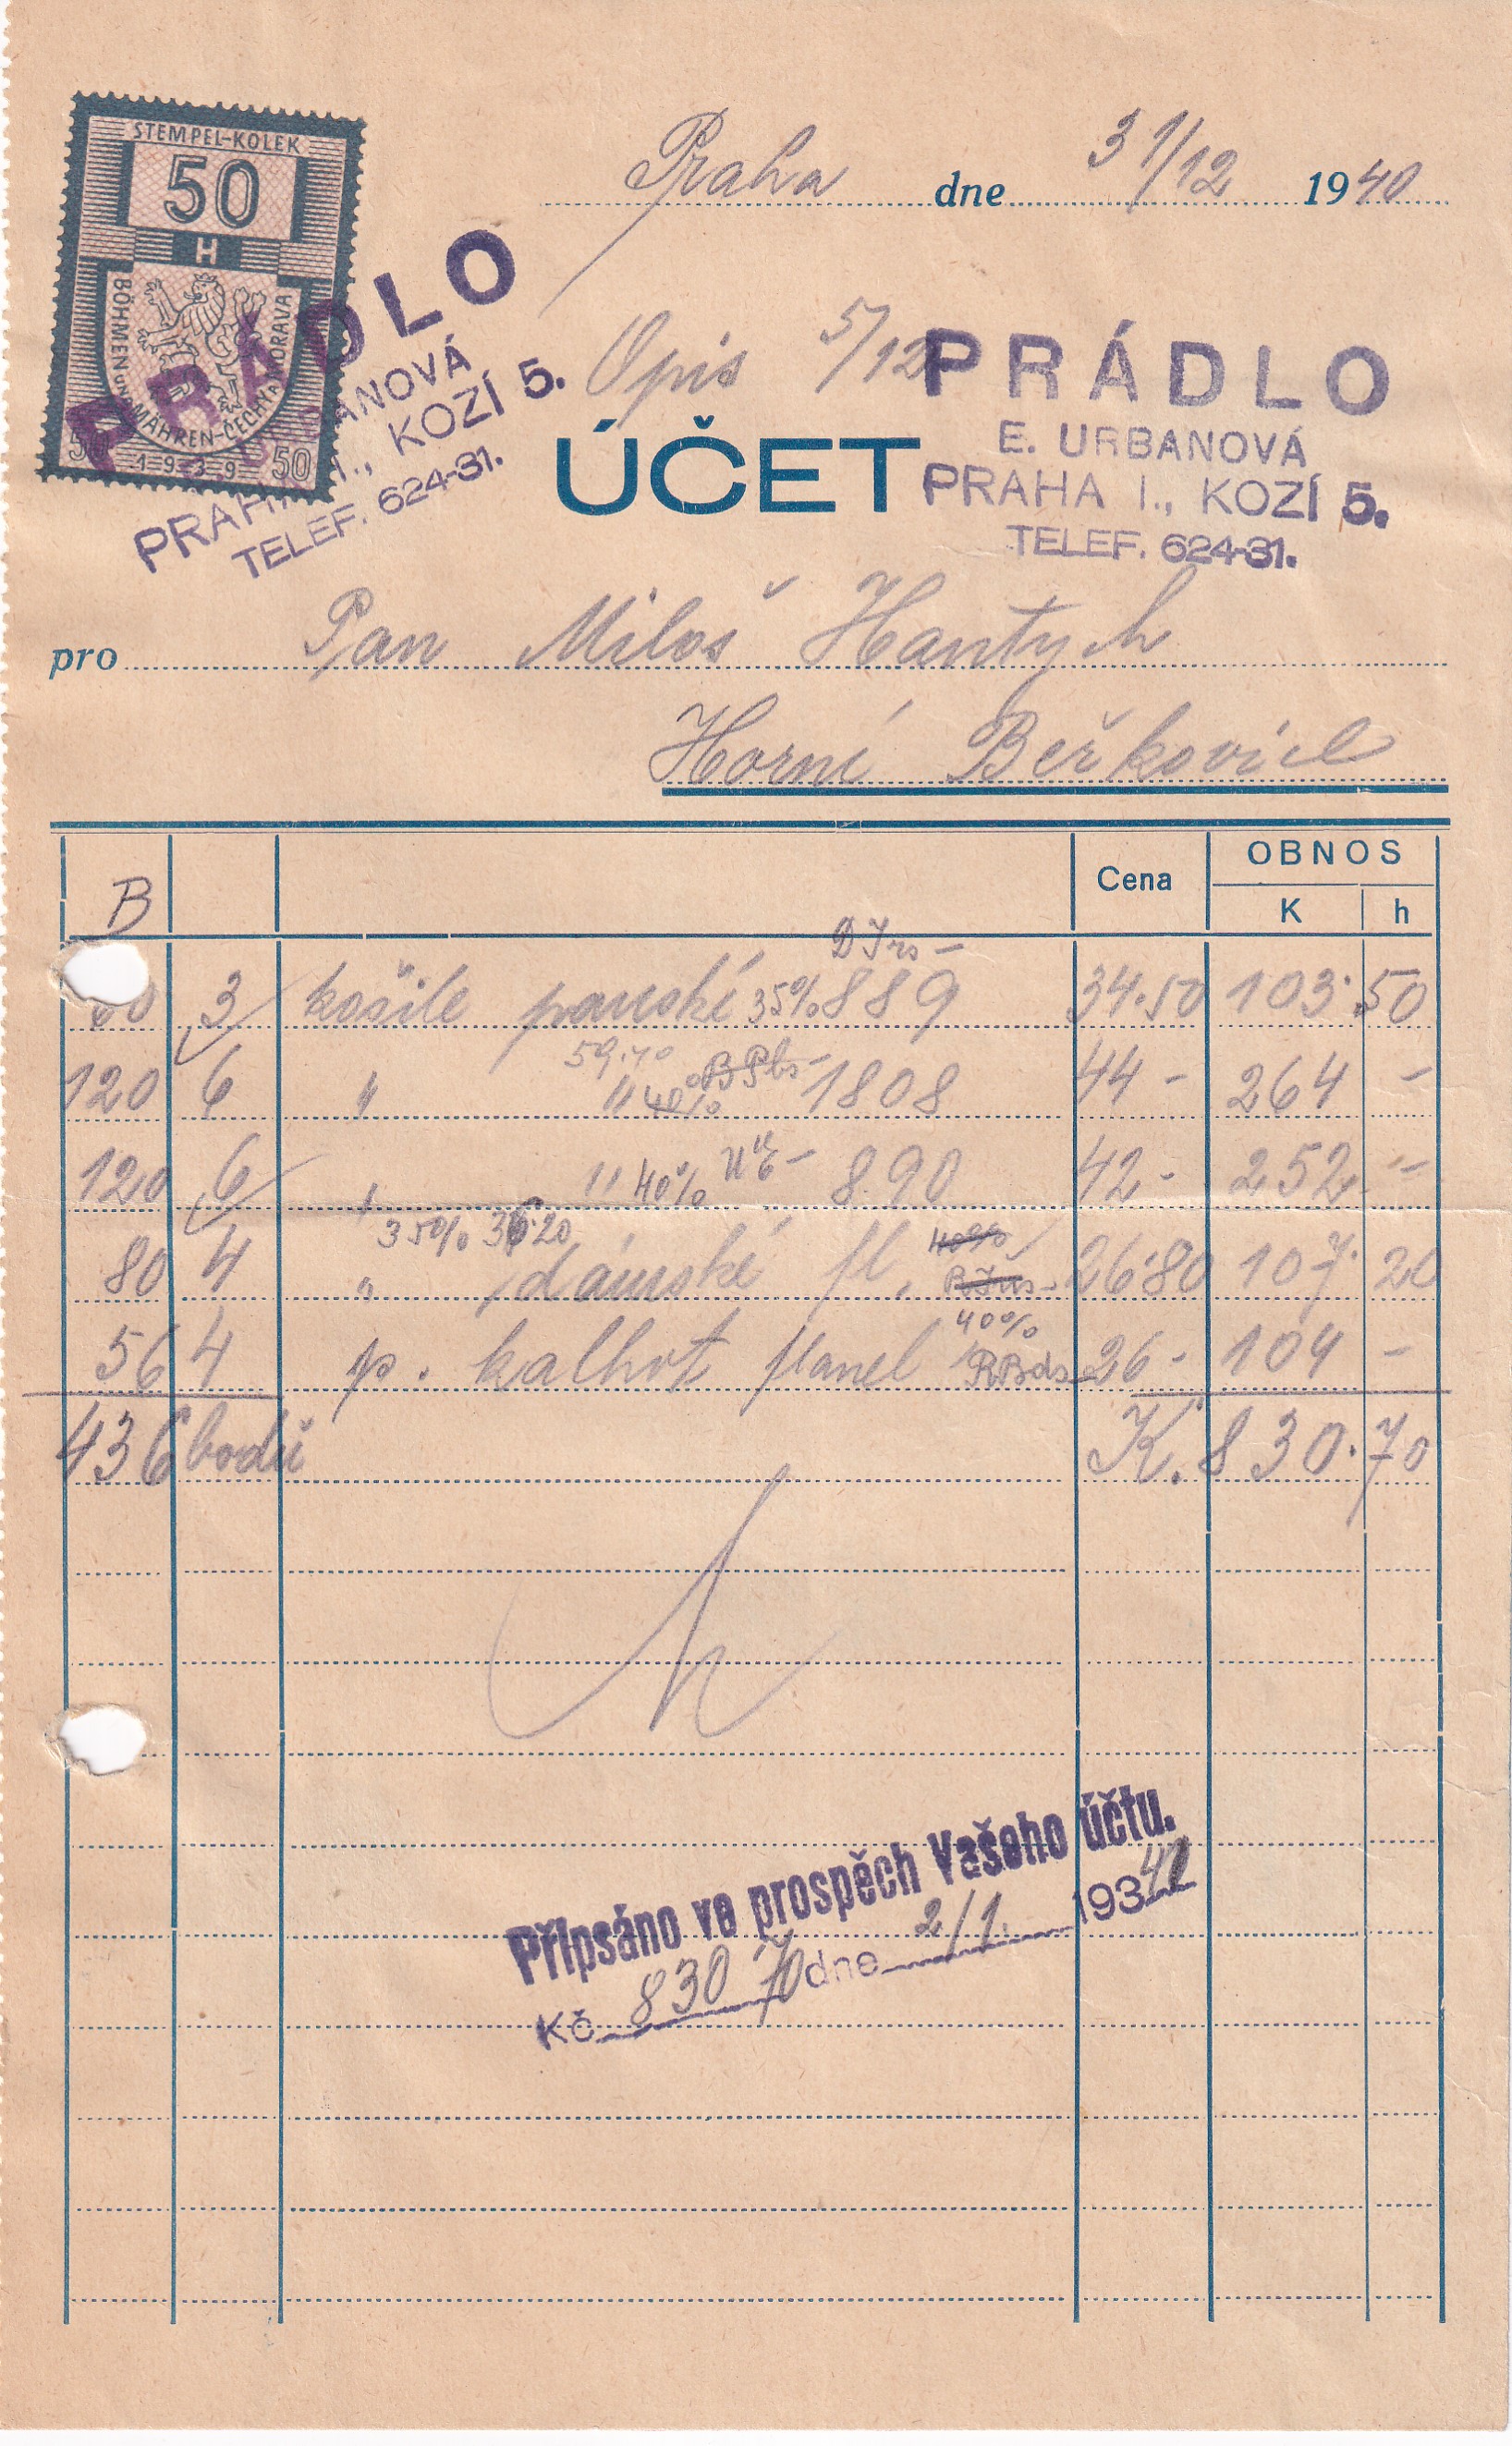 STEMPEL-KOLEK
50
H
BÖHMEN und MÄHREN-ČECHY a MORAVA
50 1939 50
Praha dne 31/12 1940
PRÁDLO
ANOVÁ
PRAHA I., KOZÍ 5.
TELEF. 624-31.
Opis 5/12
PRÁDLO
E. URBANOVÁ
PRAHA I., KOZÍ 5.
TELEF. 624-31.
ÚČET
pro Pan Miloš Hantych
Horní Beřkovice
B Cena OBNOS
K h
60 3 košile panské 35% 889 34.50 103.50
59.40
120 6 " " 40% 1808 44- 264 -
120 6 " " 40% 890 42- 252 -
35% 36.20 40%
80 4 " dámské fl. 26.80 107.20
40%
56 4 p. kalhot flanel 26- 104 -
436 bodů K. 830.70
Připsáno ve prospěch Vašeho účtu.
Kč 830 70 dne 2/1. 193 41